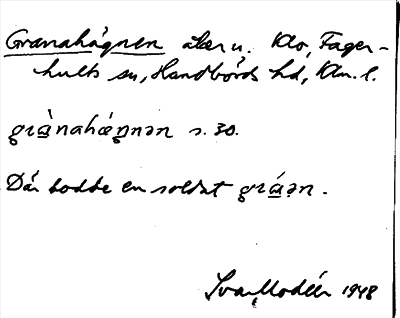 Granahägnen åker u. Klo, Fager-
hults sn, Handbörds hd, Klm. l.
grànahæ̀ŋnən s. 30.
Där bodde en soldat gráən.
Ivar Modéer 1948